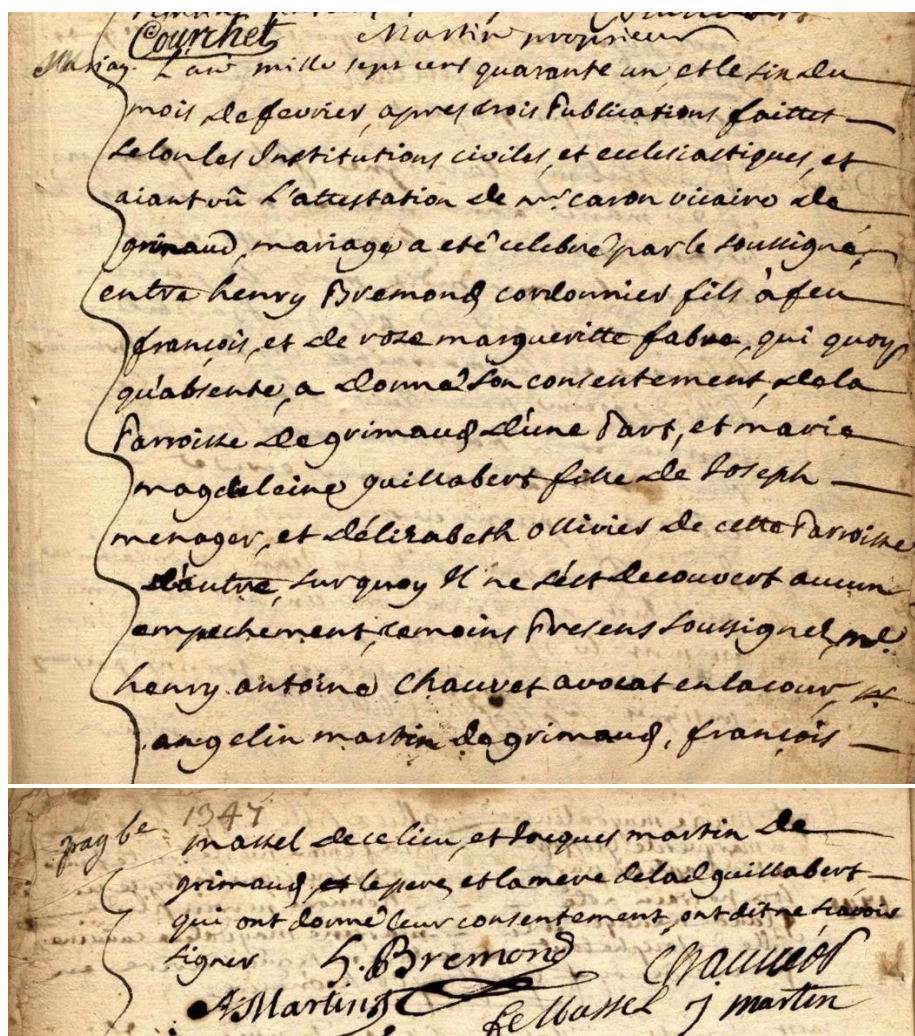 Courchet Martin proprieur
Mariag. L'an mille sept cent quarante un, et le six du
mois de fevrier, apres trois Publications faittes
selon les Institutions civiles, et ecclesiastiques, et
aiant vû l'attestation de mr. caron vicaire de
grimaud, mariage a eté celebré par le soussigné,
entre henry Bremond cordonnier fils à feu
françois, et de rose margueritte fabre, qui quoy
qu'absente, a donné son consentement, de la
Parroisse de grimaud d'une Part, et marie
magdeleine guillabert fille de Joseph
menager, et d'élizabeth ollivier de cette Parroisse
d'autre, surquoy Il ne s'est decouvert aucun
empechement, temoins Presens soussignes, me.
henry antoine Chauvet avocat en la cour, sr.
angelin martin de grimaud, françois
1347
massel de ce lieu, et Jacques martin de
grimaud, et le pere, et la mere de la d guillabert
qui ont donné leur consentement, ont dit ne sçavoir
signer h. Bremond Chauvet
A Martin
fe Massel J martin